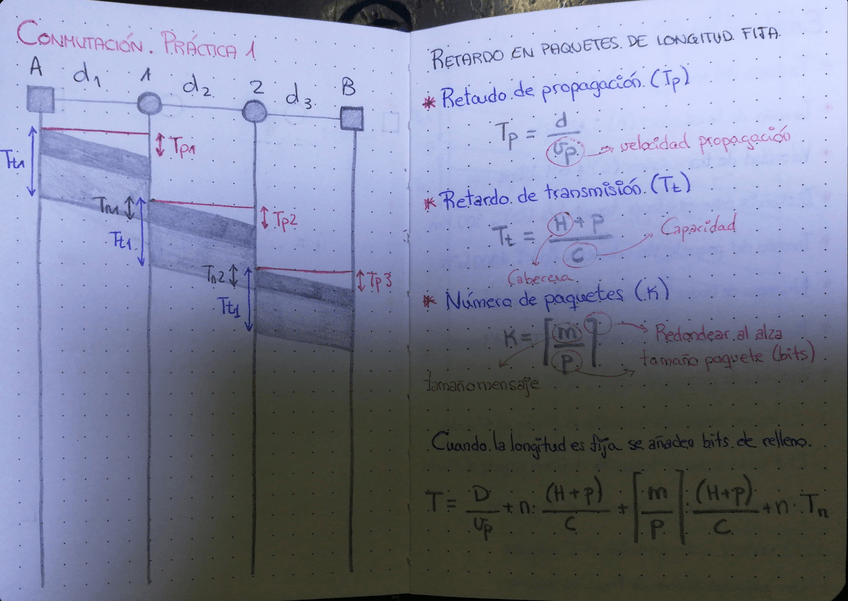 CONMUTACIÓN. PRÁCTICA 1
A d1 1 d2 2 d3 B
Tt1 Tp1
Tn1 Tt1 Tp2
Tn2 Tt1 Tp3
RETARDO EN PAQUETES DE LONGITUD FIJA
* Retardo de propagación (Tp)
Tp = d / vp → velocidad propagación
* Retardo de transmisión (Tt)
Tt = (H + P) / C
Capacidad
Cabecera
* Número de paquetes (K)
K = ⌈m / P⌉
Redondear al alza
tamaño paquete (bits)
tamaño mensaje
Cuando la longitud es fija se añaden bits de relleno.
T = D / vp + n · (H+p) / C + ⌈m / P⌉ · (H+p) / C + n · Tn